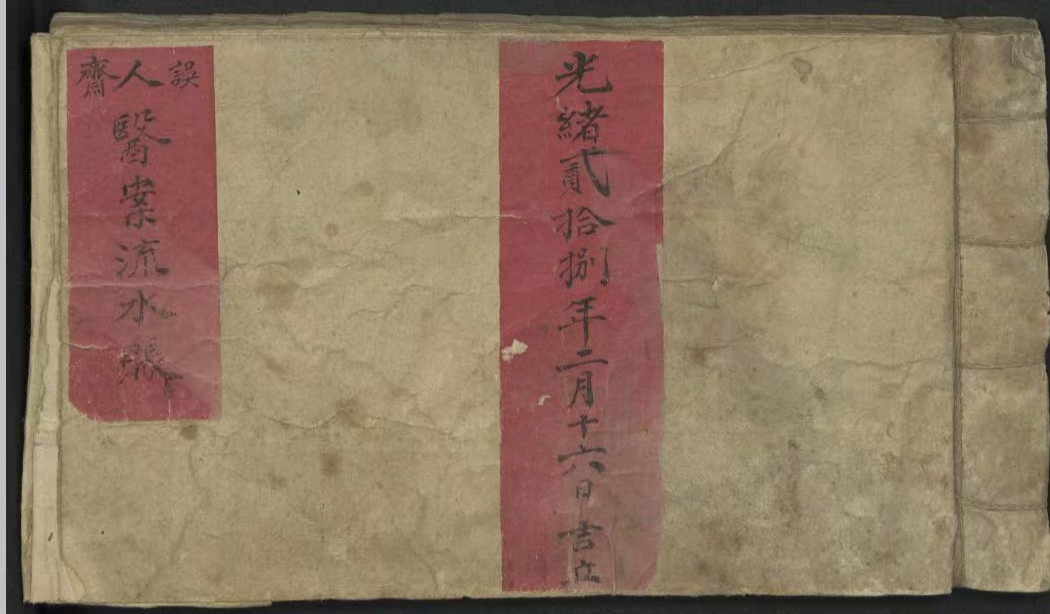 光緒貳拾捌年二月十六日吉立
誤人齋
醫案流水賬